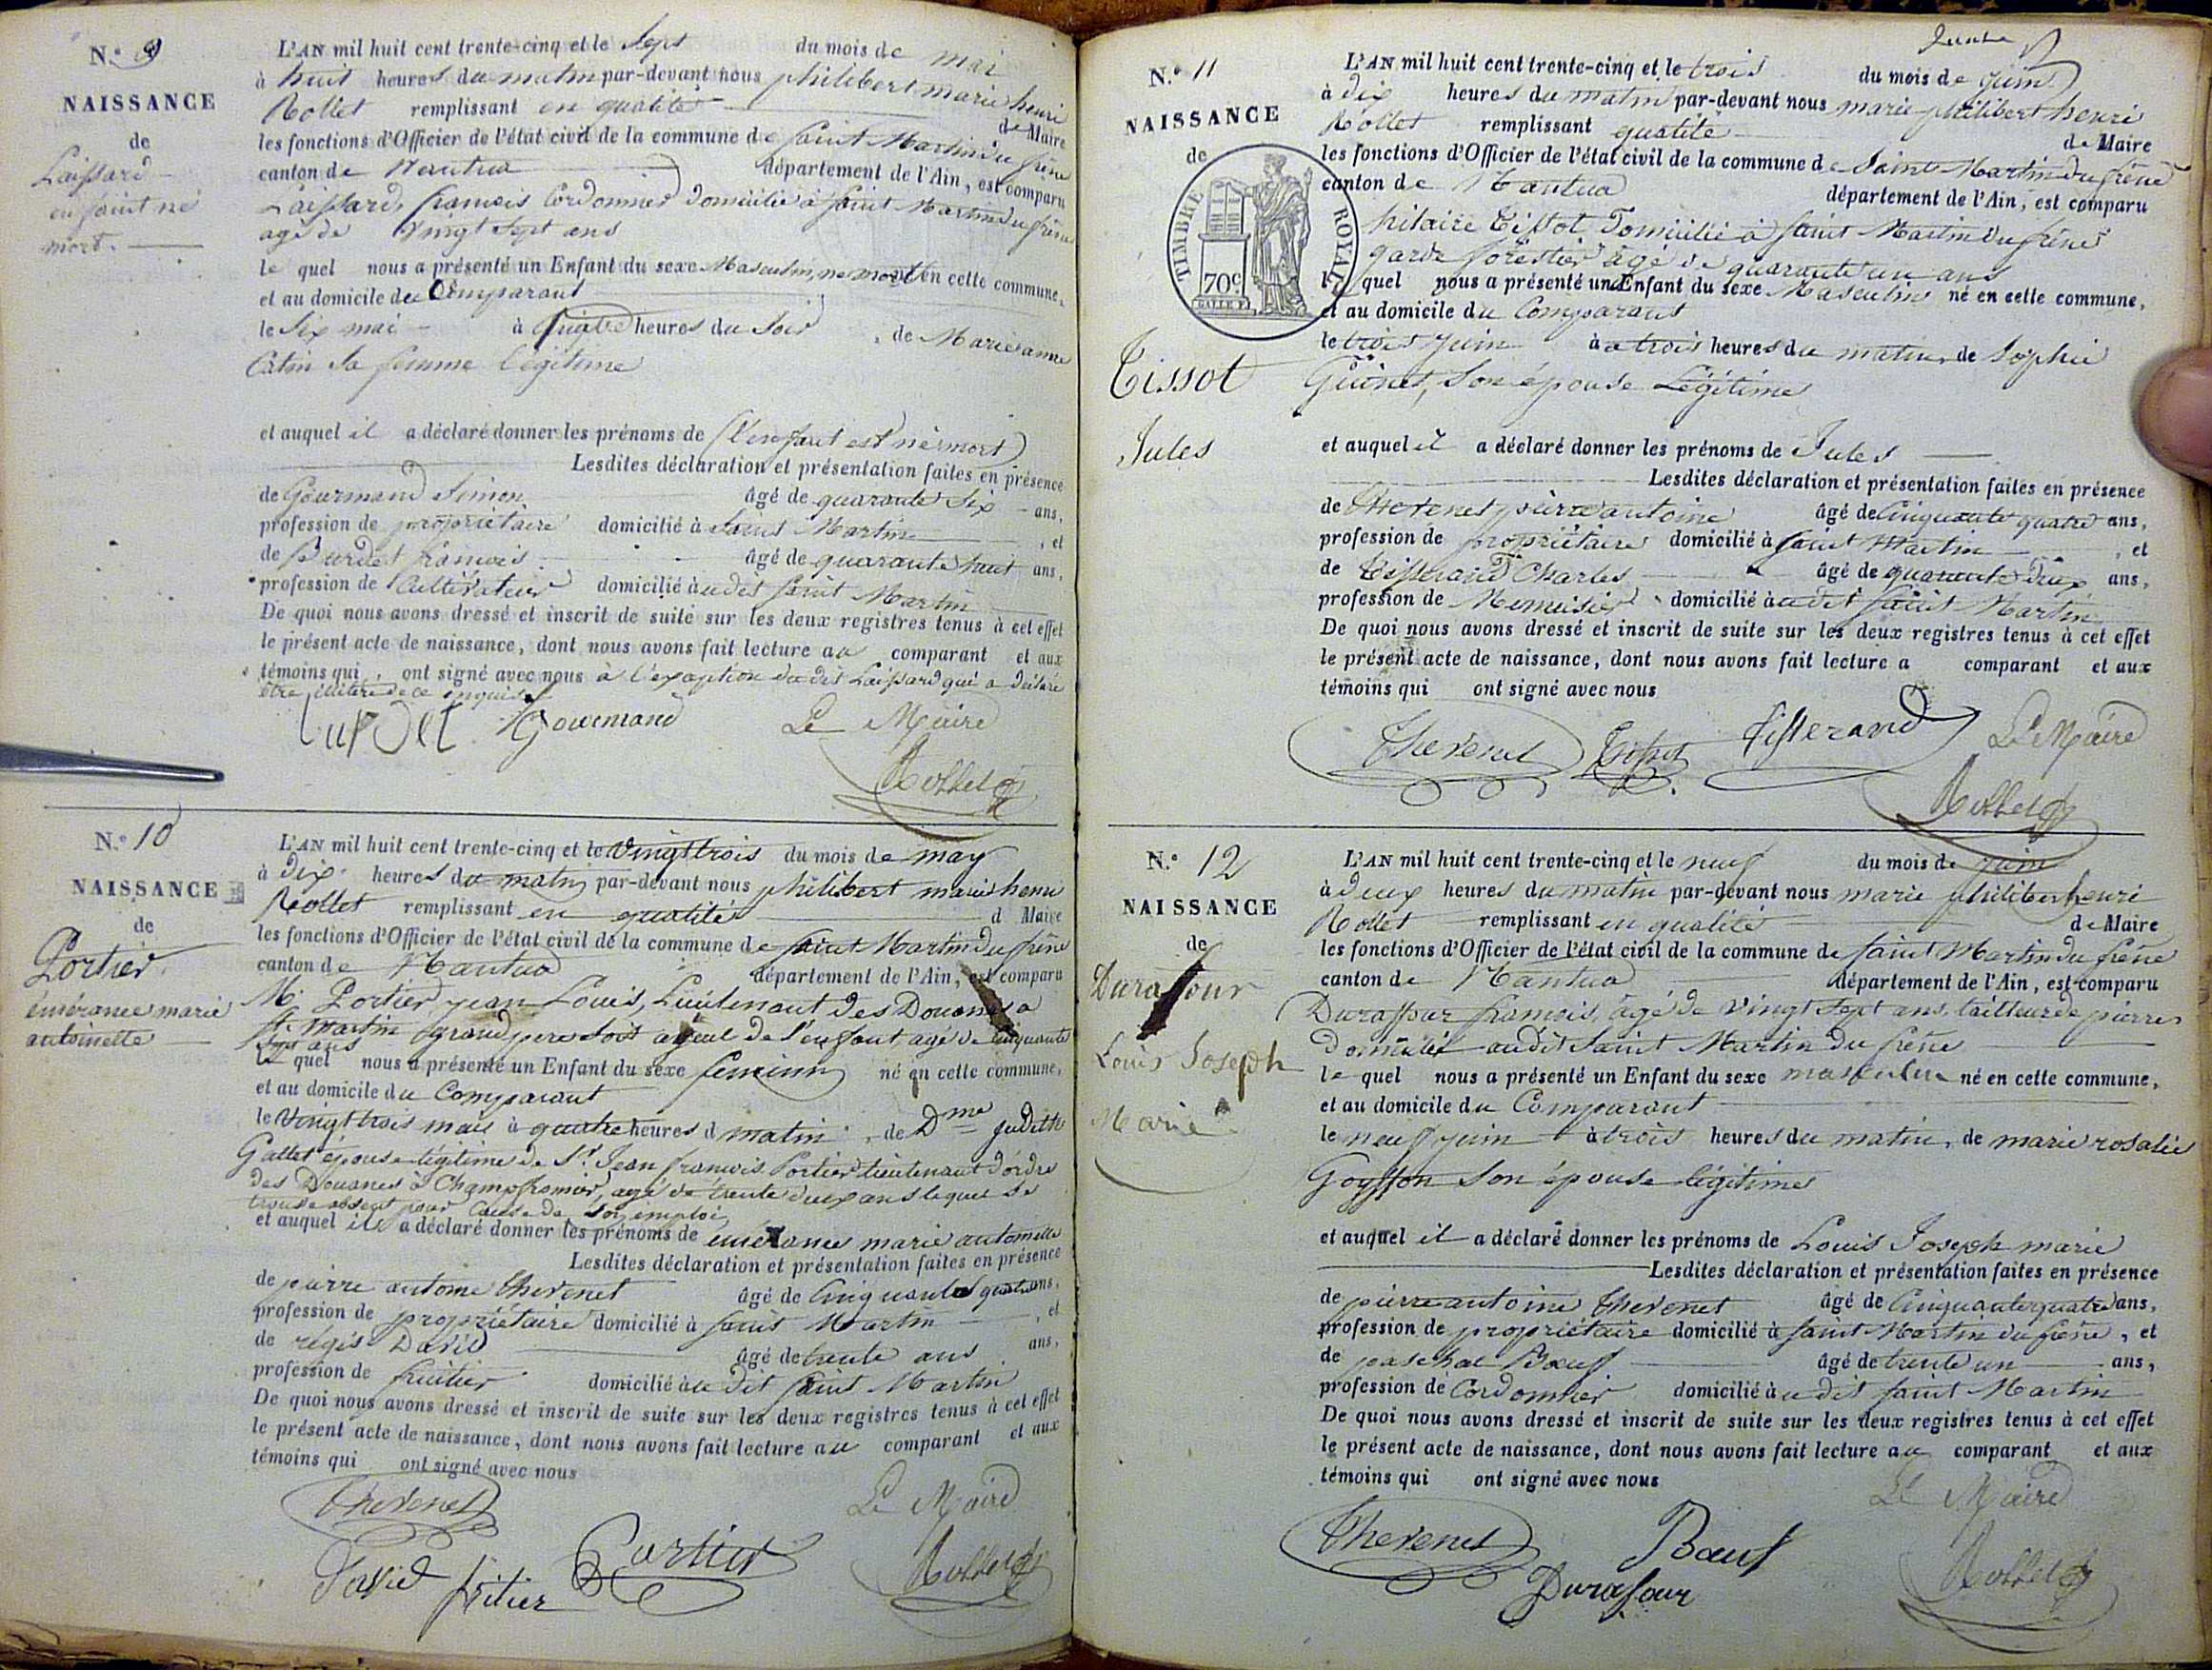 N.º 9
NAISSANCE
de
Laissard
enfant né
mort.
L'AN mil huit cent trente-cinq et le Sept du mois de mai
à huit heures du matin par-devant nous philibert marie henri
Rollet remplissant en qualité de Maire
les fonctions d'Officier de l'état civil de la commune de Saint Martin du frêne
canton de Nantua département de l'Ain, est comparu
Laissard, francois Cordonnier domicilié à Saint Martin du frêne
agé de vingt Sept ans
le quel nous a présenté un Enfant du sexe Masculin, né mort en cette commune,
et au domicile du Comparant
le Six mai à heures du Soir, de Marie anne
Catin Sa femme légitime
et auquel il a déclaré donner les prénoms de (l'enfant est né mort)
Lesdites déclaration et présentation faites en présence
de Gourmand Simon âgé de quarante Six ans,
profession de propriétaire domicilié à Saint Martin, et
de Burdet francois âgé de quarante huit ans,
profession de Cultivateur domicilié au dit Saint Martin
De quoi nous avons dressé et inscrit de suite sur les deux registres tenus à cet effet
le présent acte de naissance, dont nous avons fait lecture au comparant et aux
témoins qui ont signé avec nous à l'exception du dit Laissard qui a déclaré
être illitéré de ce enquis
Burdet Gourmand Le Maire
Rollet
N.º 10
NAISSANCE
de
Portier
émérance marie
antoinette
L'AN mil huit cent trente-cinq et le Vingt trois du mois de may
à Dix heures du matin par-devant nous philibert marie henri
Rollet remplissant en qualité d Maire
les fonctions d'Officier de l'état civil de la commune de Saint Martin du frêne
canton de Nantua département de l'Ain, est comparu
M. Portier jean Louis, Lieutenant des Douanes a
St. Martin grand pere soit ayeul de l'enfant agé de cinquante
Sept ans
le quel nous a présenté un Enfant du sexe feminin né en cette commune,
et au domicile du Comparant
le Vingt trois mai à quatre heures d matin, de Dme judith
Gallet épouse légitime de Sr. Jean francois Portier lieutenant d'ordre
des Douanes à Champfromier, agé de trente deux ans lequel se
trouve absent pour Cause de Son emploi
et auquel il a déclaré donner les prénoms de émérance marie antoinette
Lesdites déclaration et présentation faites en présence
de pierre antoine thevenet âgé de Cinquante quatre ans,
profession de propriétaire domicilié à Saint Martin, et
de regis David âgé de trente ans ans,
profession de fruitier domicilié au dit Saint Martin
De quoi nous avons dressé et inscrit de suite sur les deux registres tenus à cet effet
le présent acte de naissance, dont nous avons fait lecture au comparant et aux
témoins qui ont signé avec nous
Thevenet Le Maire
David fritier Portier Rollet
N.º 11
NAISSANCE
de
TIMBRE ROYAL
70c
Tissot
Jules
L'AN mil huit cent trente-cinq et le trois du mois de juin
à Dix heures du matin par-devant nous marie philibert henri
Rollet remplissant qualité de Maire
les fonctions d'Officier de l'état civil de la commune de Saint Martin du frêne
canton de Nantua département de l'Ain, est comparu
hilaire Tissot Domicilié à Saint Martin du frêne
garde forestier agé de quarante un ans
le quel nous a présenté un Enfant du sexe Masculin né en cette commune,
et au domicile du Comparant
le trois juin à trois heures du matin, de Sophie
Guinet, Son épouse Légitime
et auquel il a déclaré donner les prénoms de Jules
Lesdites déclaration et présentation faites en présence
de thevenet pierre antoine âgé de Cinquante quatre ans,
profession de propriétaire domicilié à Saint Martin, et
de Tisserand Charles âgé de quarante Deux ans,
profession de Menuisier domicilié au dit Saint Martin
De quoi nous avons dressé et inscrit de suite sur les deux registres tenus à cet effet
le présent acte de naissance, dont nous avons fait lecture a comparant et aux
témoins qui ont signé avec nous
Thevenet Tissot Tisserand Le Maire
Rollet
N.º 12
NAISSANCE
de
Durafour
Louis Joseph
Marie
L'AN mil huit cent trente-cinq et le neuf du mois de juin
à Deux heures du matin par-devant nous marie philibert henri
Rollet remplissant en qualité de Maire
les fonctions d'Officier de l'état civil de la commune de Saint Martin du frêne
canton de Nantua département de l'Ain, est comparu
Duraffour francois, agé de vingt Sept ans, tailleur de pierres
Domicilié audit Saint Martin du frêne
le quel nous a présenté un Enfant du sexe masculin né en cette commune,
et au domicile du Comparant
le neuf juin à trois heures du matin, de marie rosalie
Goyffon Son épouse légitime
et auquel il a déclaré donner les prénoms de Louis Joseph marie
Lesdites déclaration et présentation faites en présence
de pierre antoine thevenet âgé de Cinquante quatre ans,
profession de propriétaire domicilié à Saint Martin du frêne, et
de paschal Boeuf âgé de trente un ans,
profession de Cordonnier domicilié au dit Saint Martin
De quoi nous avons dressé et inscrit de suite sur les deux registres tenus à cet effet
le présent acte de naissance, dont nous avons fait lecture au comparant et aux
témoins qui ont signé avec nous
Thevenet Boeuf Le Maire
Durafour Rollet